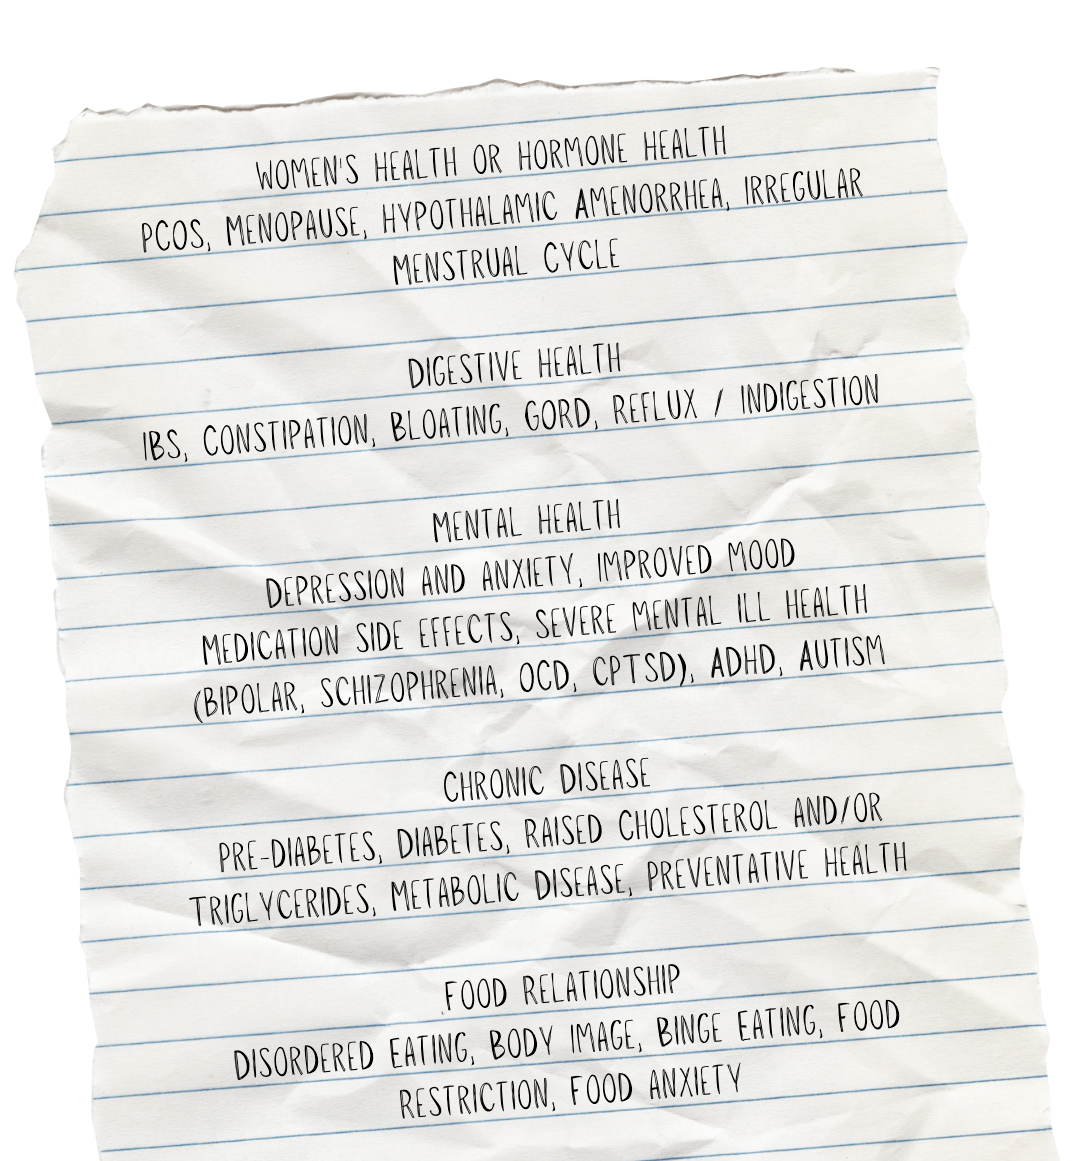 WOMEN'S HEALTH OR HORMONE HEALTH
PCOS, MENOPAUSE, HYPOTHALAMIC AMENORRHEA, IRREGULAR
MENSTRUAL CYCLE
DIGESTIVE HEALTH
IBS, CONSTIPATION, BLOATING, GORD, REFLUX / INDIGESTION
MENTAL HEALTH
DEPRESSION AND ANXIETY, IMPROVED MOOD
MEDICATION SIDE EFFECTS, SEVERE MENTAL ILL HEALTH
(BIPOLAR, SCHIZOPHRENIA, OCD, CPTSD), ADHD, AUTISM
CHRONIC DISEASE
PRE-DIABETES, DIABETES, RAISED CHOLESTEROL AND/OR
TRIGLYCERIDES, METABOLIC DISEASE, PREVENTATIVE HEALTH
FOOD RELATIONSHIP
DISORDERED EATING, BODY IMAGE, BINGE EATING, FOOD
RESTRICTION, FOOD ANXIETY